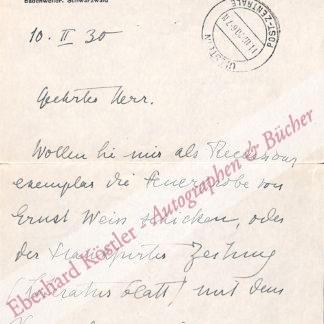 Badenweiler, Schwarzwald
10. II 30
POST-ZENTRALE
ULLSTEIN
Geehrter Herr.
Wollen Sie mir als Recensions
exemplar die Feuerprobe von
Ernst Weiss schicken, oder
der Frankfurter Zeitung
(Literaturblatt) mit dem
Eberhard Köstler - Autographen & Bücher